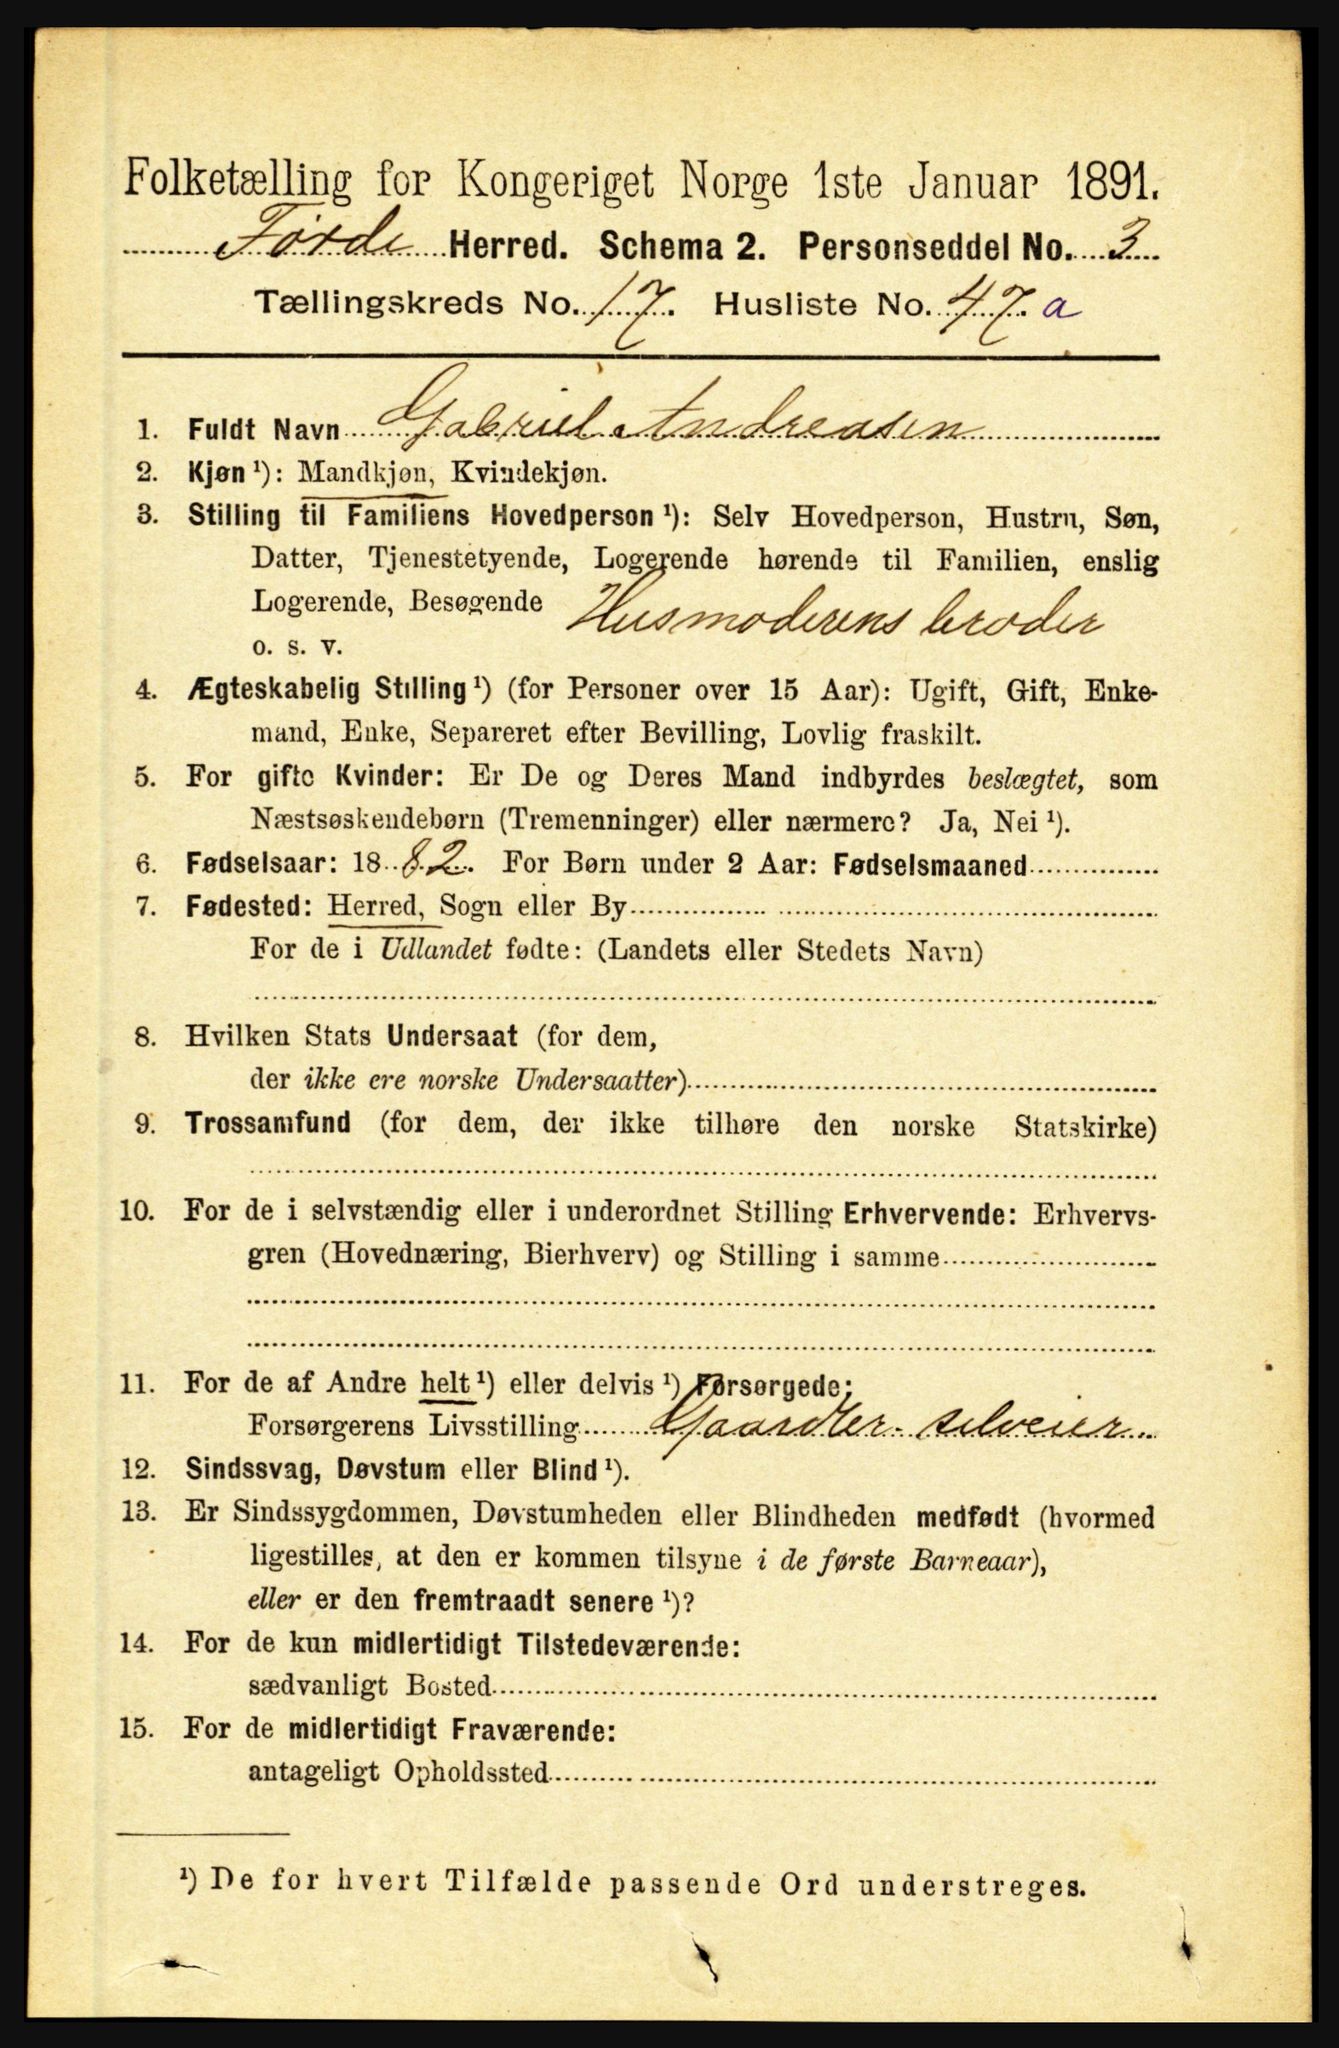 Folketælling for Kongeriget Norge 1ste Januar 1891.
Førde Herred. Schema 2. Personseddel No. 3
Tællingskreds No. 17. Husliste No. 47 a
1. Fuldt Navn Gabriel Andreasen
2. Kjøn ¹): Mandkjøn, Kvindekjøn.
3. Stilling til Familiens Hovedperson ¹): Selv Hovedperson, Hustru, Søn,
Datter, Tjenestetyende, Logerende hørende til Familien, enslig
Logerende, Besøgende Husmoderens broder
o. s. v.
4. Ægteskabelig Stilling ¹) (for Personer over 15 Aar): Ugift, Gift, Enke-
mand, Enke, Separeret efter Bevilling, Lovlig fraskilt.
5. For gifte Kvinder: Er De og Deres Mand indbyrdes beslægtet, som
Næstsøskendebørn (Tremenninger) eller nærmere? Ja, Nei ¹).
6. Fødselsaar: 1882. For Børn under 2 Aar: Fødselsmaaned
7. Fødested: Herred, Sogn eller By
For de i Udlandet fødte: (Landets eller Stedets Navn)
8. Hvilken Stats Undersaat (for dem,
der ikke ere norske Undersaatter)
9. Trossamfund (for dem, der ikke tilhøre den norske Statskirke)
10. For de i selvstændig eller i underordnet Stilling Erhvervende: Erhvervs-
gren (Hovednæring, Bierhverv) og Stilling i samme
11. For de af Andre helt ¹) eller delvis ¹) Forsørgede:
Forsørgerens Livsstilling Gaardbr. selveier
12. Sindssvag, Døvstum eller Blind ¹).
13. Er Sindssygdommen, Døvstumheden eller Blindheden medfødt (hvormed
ligestilles, at den er kommen tilsyne i de første Barneaar),
eller er den fremtraadt senere ¹)?
14. For de kun midlertidigt Tilstedeværende:
sædvanligt Bosted
15. For de midlertidigt Fraværende:
antageligt Opholdssted
¹) De for hvert Tilfælde passende Ord understreges.